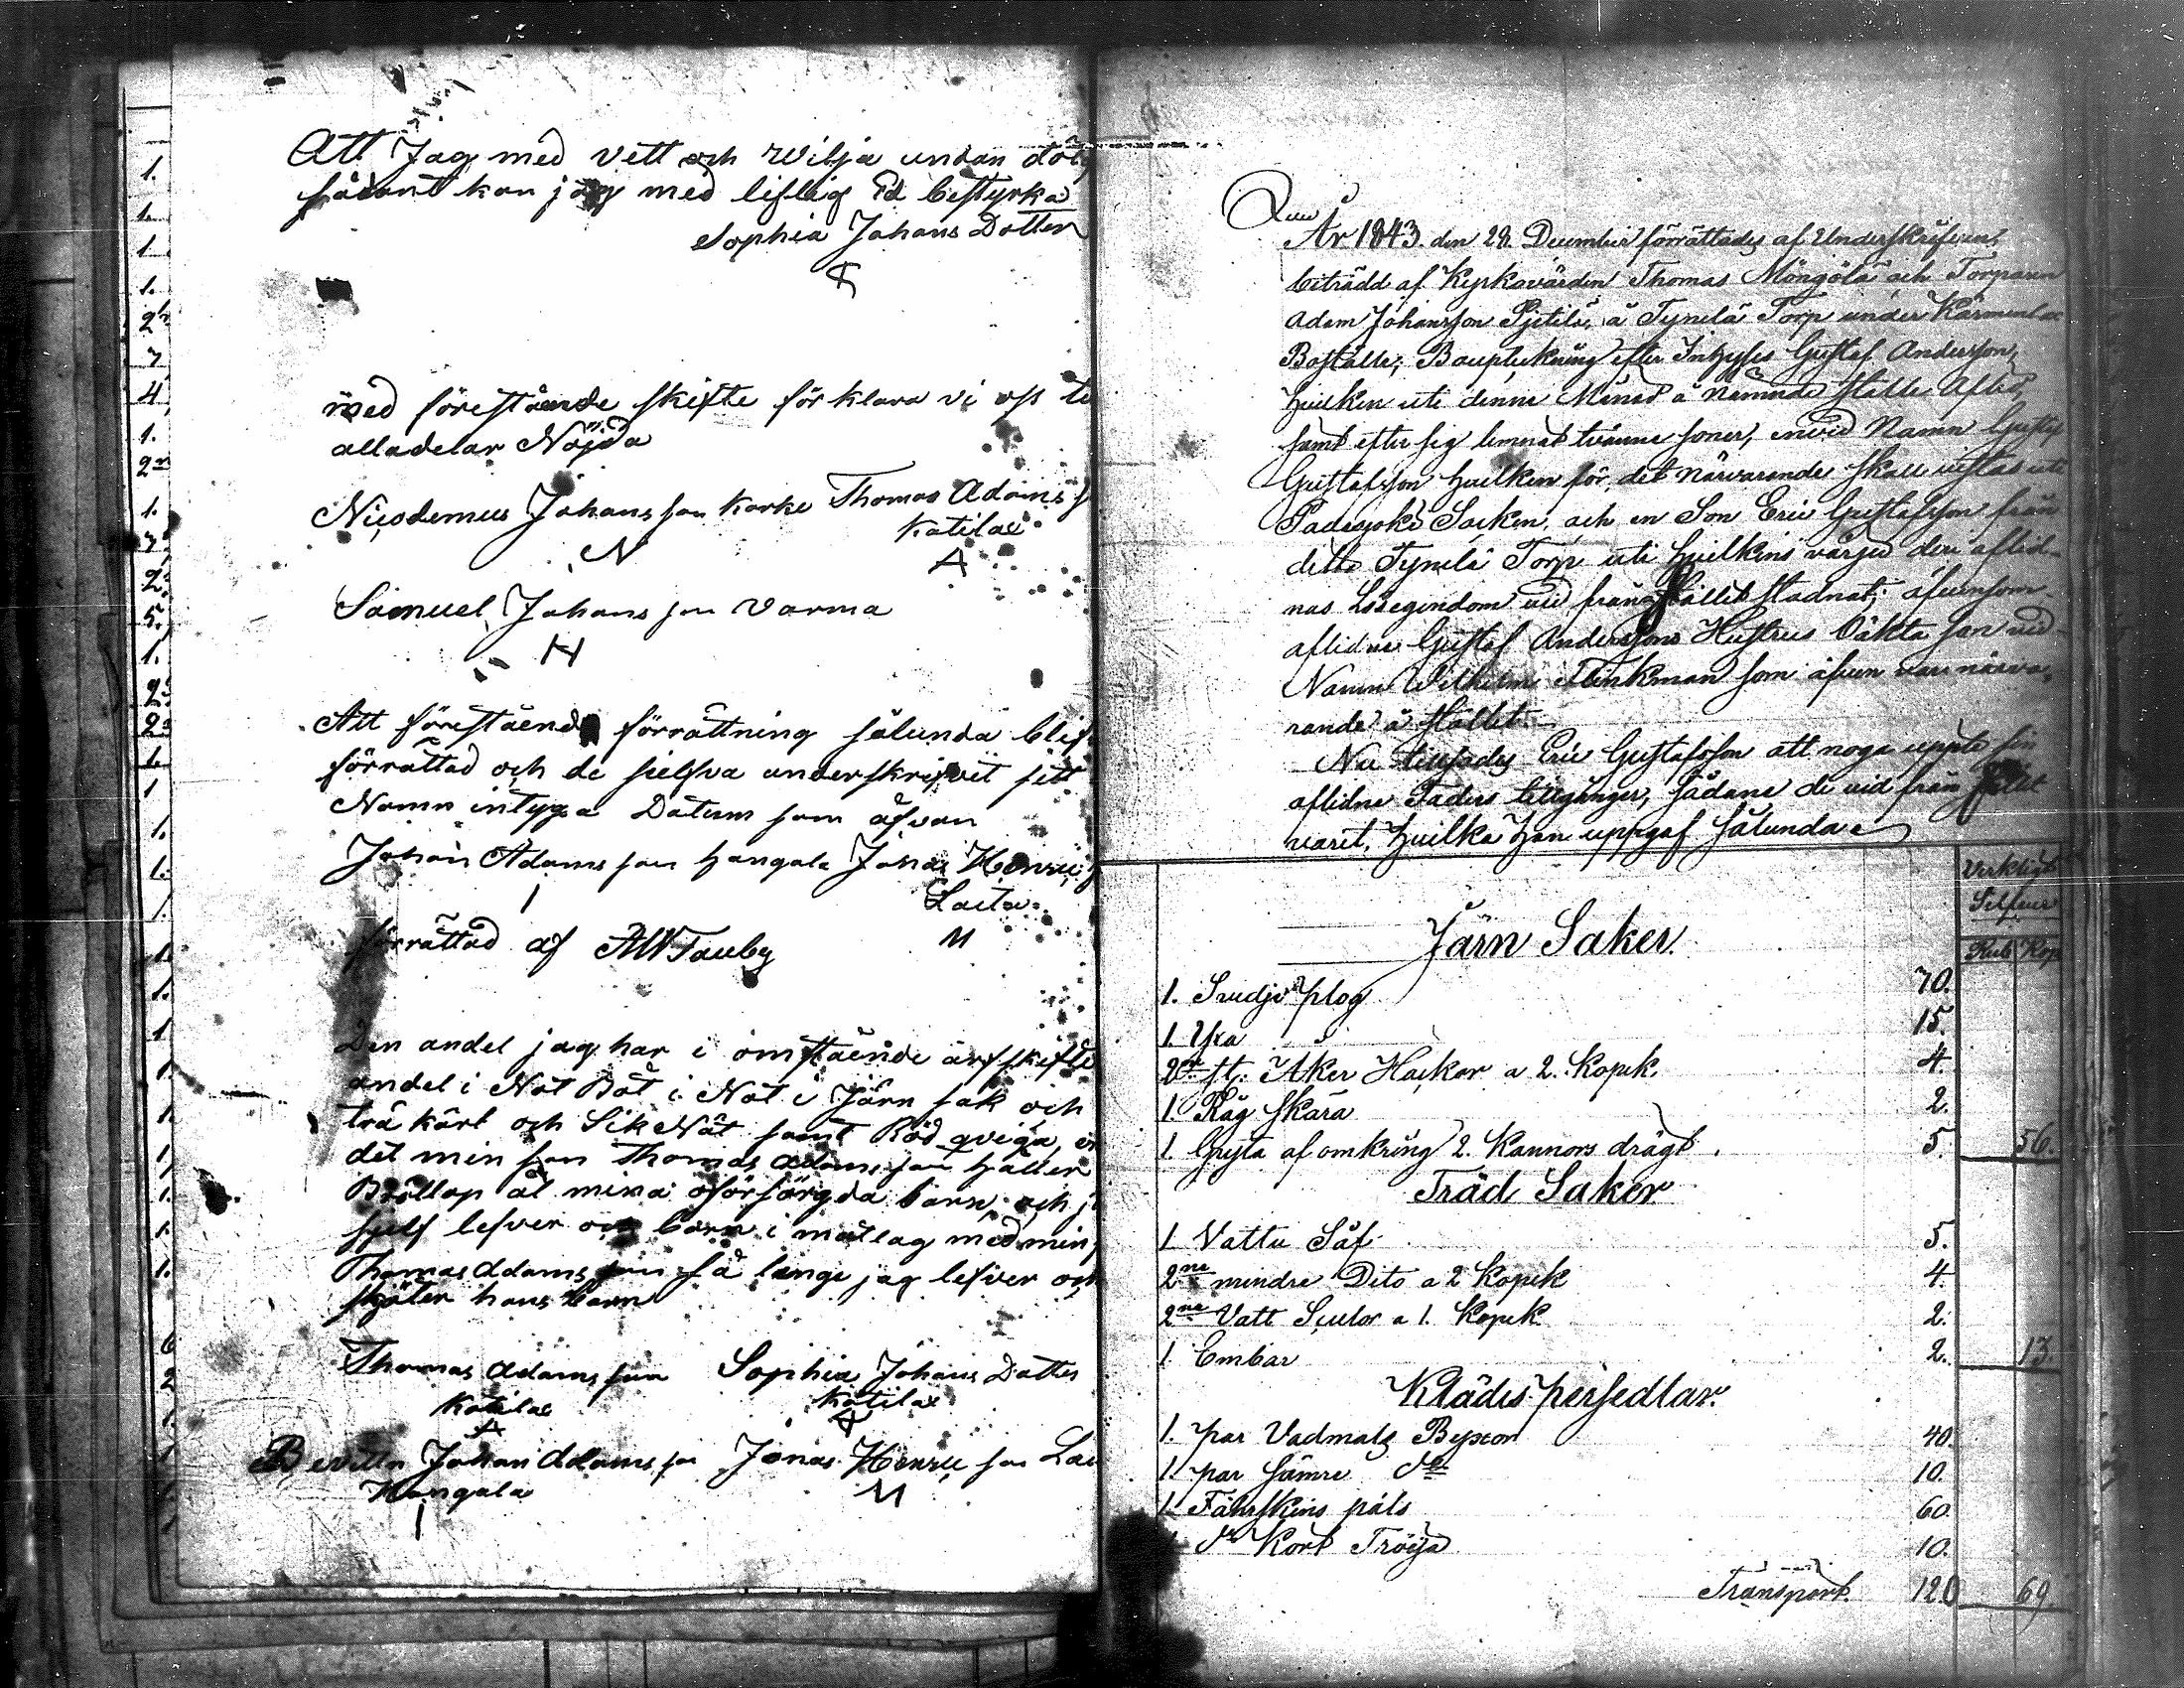 Att Jag med vett och wilja undan döl
sådant kan jag med liflig Ed bestyrka
Sophia Johans Dotter
med förestående skifte förklara vi oss te
alladelar Nöjda
Nicodemus Johans son Karke Thomas Adams s
Katilae
N
A
Samuel Johans son Varma
H
Att förestående förrättning sålunda blif
förrättad och de sielfva underskrifvit sitt
Namn intyga Datum som åfvan
Johan Adams son Hangala Jonas Henric s
Laita
I
M
förrättad af AW Tauby
Den andel jag har i omstående arfskifte
andel i Nöt Båt i Not i Järn sak och
trä kärl och Sik Nät samt Röd qviga, en
det min son Thomas Adams son håller
Bröllop åt mina oförsörgda barn, och j
sjelf lefver och barn i matlag med min
Thomas Adams son så länge jag lefver och
sköter hans barn
Thomas Adams son Sophia Johans Dotter
Katilae Katilae
A
Bevittn Johan Adams son Jonas Henric son Lai
Hangala
I
M
År 1843 den 28 December förrättades af Underskrefven,
biträdd af Kyrkovärden Thomas Mångölä och Torparen
Adam Johansson Pjetilä, å Tynilä Torp under Kärmenlae
Boställe; Bouptekning efter Inhyses Gustaf Andersson,
hvilken uti denne Månad å nämnde ställe Afled,
samt efter sig lemnat tvänne söner, en vid Namn Gustaf
Gustafsson hvilken för det närvarande skall vistas uti
Padasjoki Socken, och en Son Eric Gustafsson från
ditto Tynilä Torp uti hvilkens värjeo den aflid
nas Lösegendom vid frånfället stadnat; äfvensom
aflidne Gustaf Anderssons Hustrus oäkta son vid
Namn Wilhelm Flinkman som äfven var närva,
rande å stället.
Nu tillsades Eric Gustafsson att noga uppte sin
aflidne Faders tillgångar, sådane de vid frånfället
varit, hvilka han uppgaf sålunda:
Verkligt
Silfver
Rub Kop
Järn Saker.
1. Svedje plog 70.
1 Yxa 15.
2ne st. Åker Hackor a 2. Kopek. 4.
1. Råg skära 2.
1 Gryta af omkring 2. Kannors drägt. 5. 56.
Träd Saker
1 Vattu Så 5.
2ne mindre Dito a 2 Kopek 4.
2ne Vatt Scular a 1. Kopek 2.
1 Embar 2. 13.
Klädes persedlar.
1. par Vadmals Byxor 40.
1. par sämre do 10.
1. Fahrskins päls 60.
1 do Kort Tröija 10.
Transport. 120 69